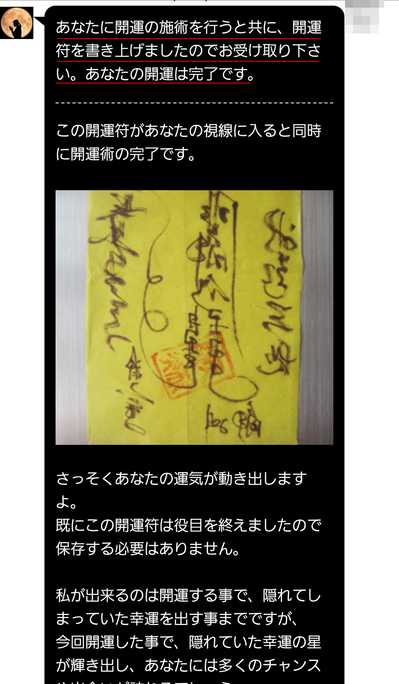 あなたに開運の施術を行うと共に、開運
符を書き上げましたのでお受け取り下さ
い。あなたの開運は完了です。
この開運符があなたの視線に入ると同時
に開運術の完了です。
さっそくあなたの運気が動き出します
よ。
既にこの開運符は役目を終えましたので
保存する必要はありません。
私が出来るのは開運する事で、隠れてし
まっていた幸運を出す事までですが、
今回開運した事で、隠れていた幸運の星
が輝き出し、あなたには多くのチャンス